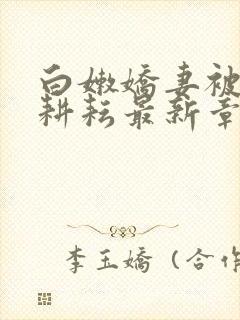 白嫩嬌妻被
耕耘最新章
李玉嬌（合作